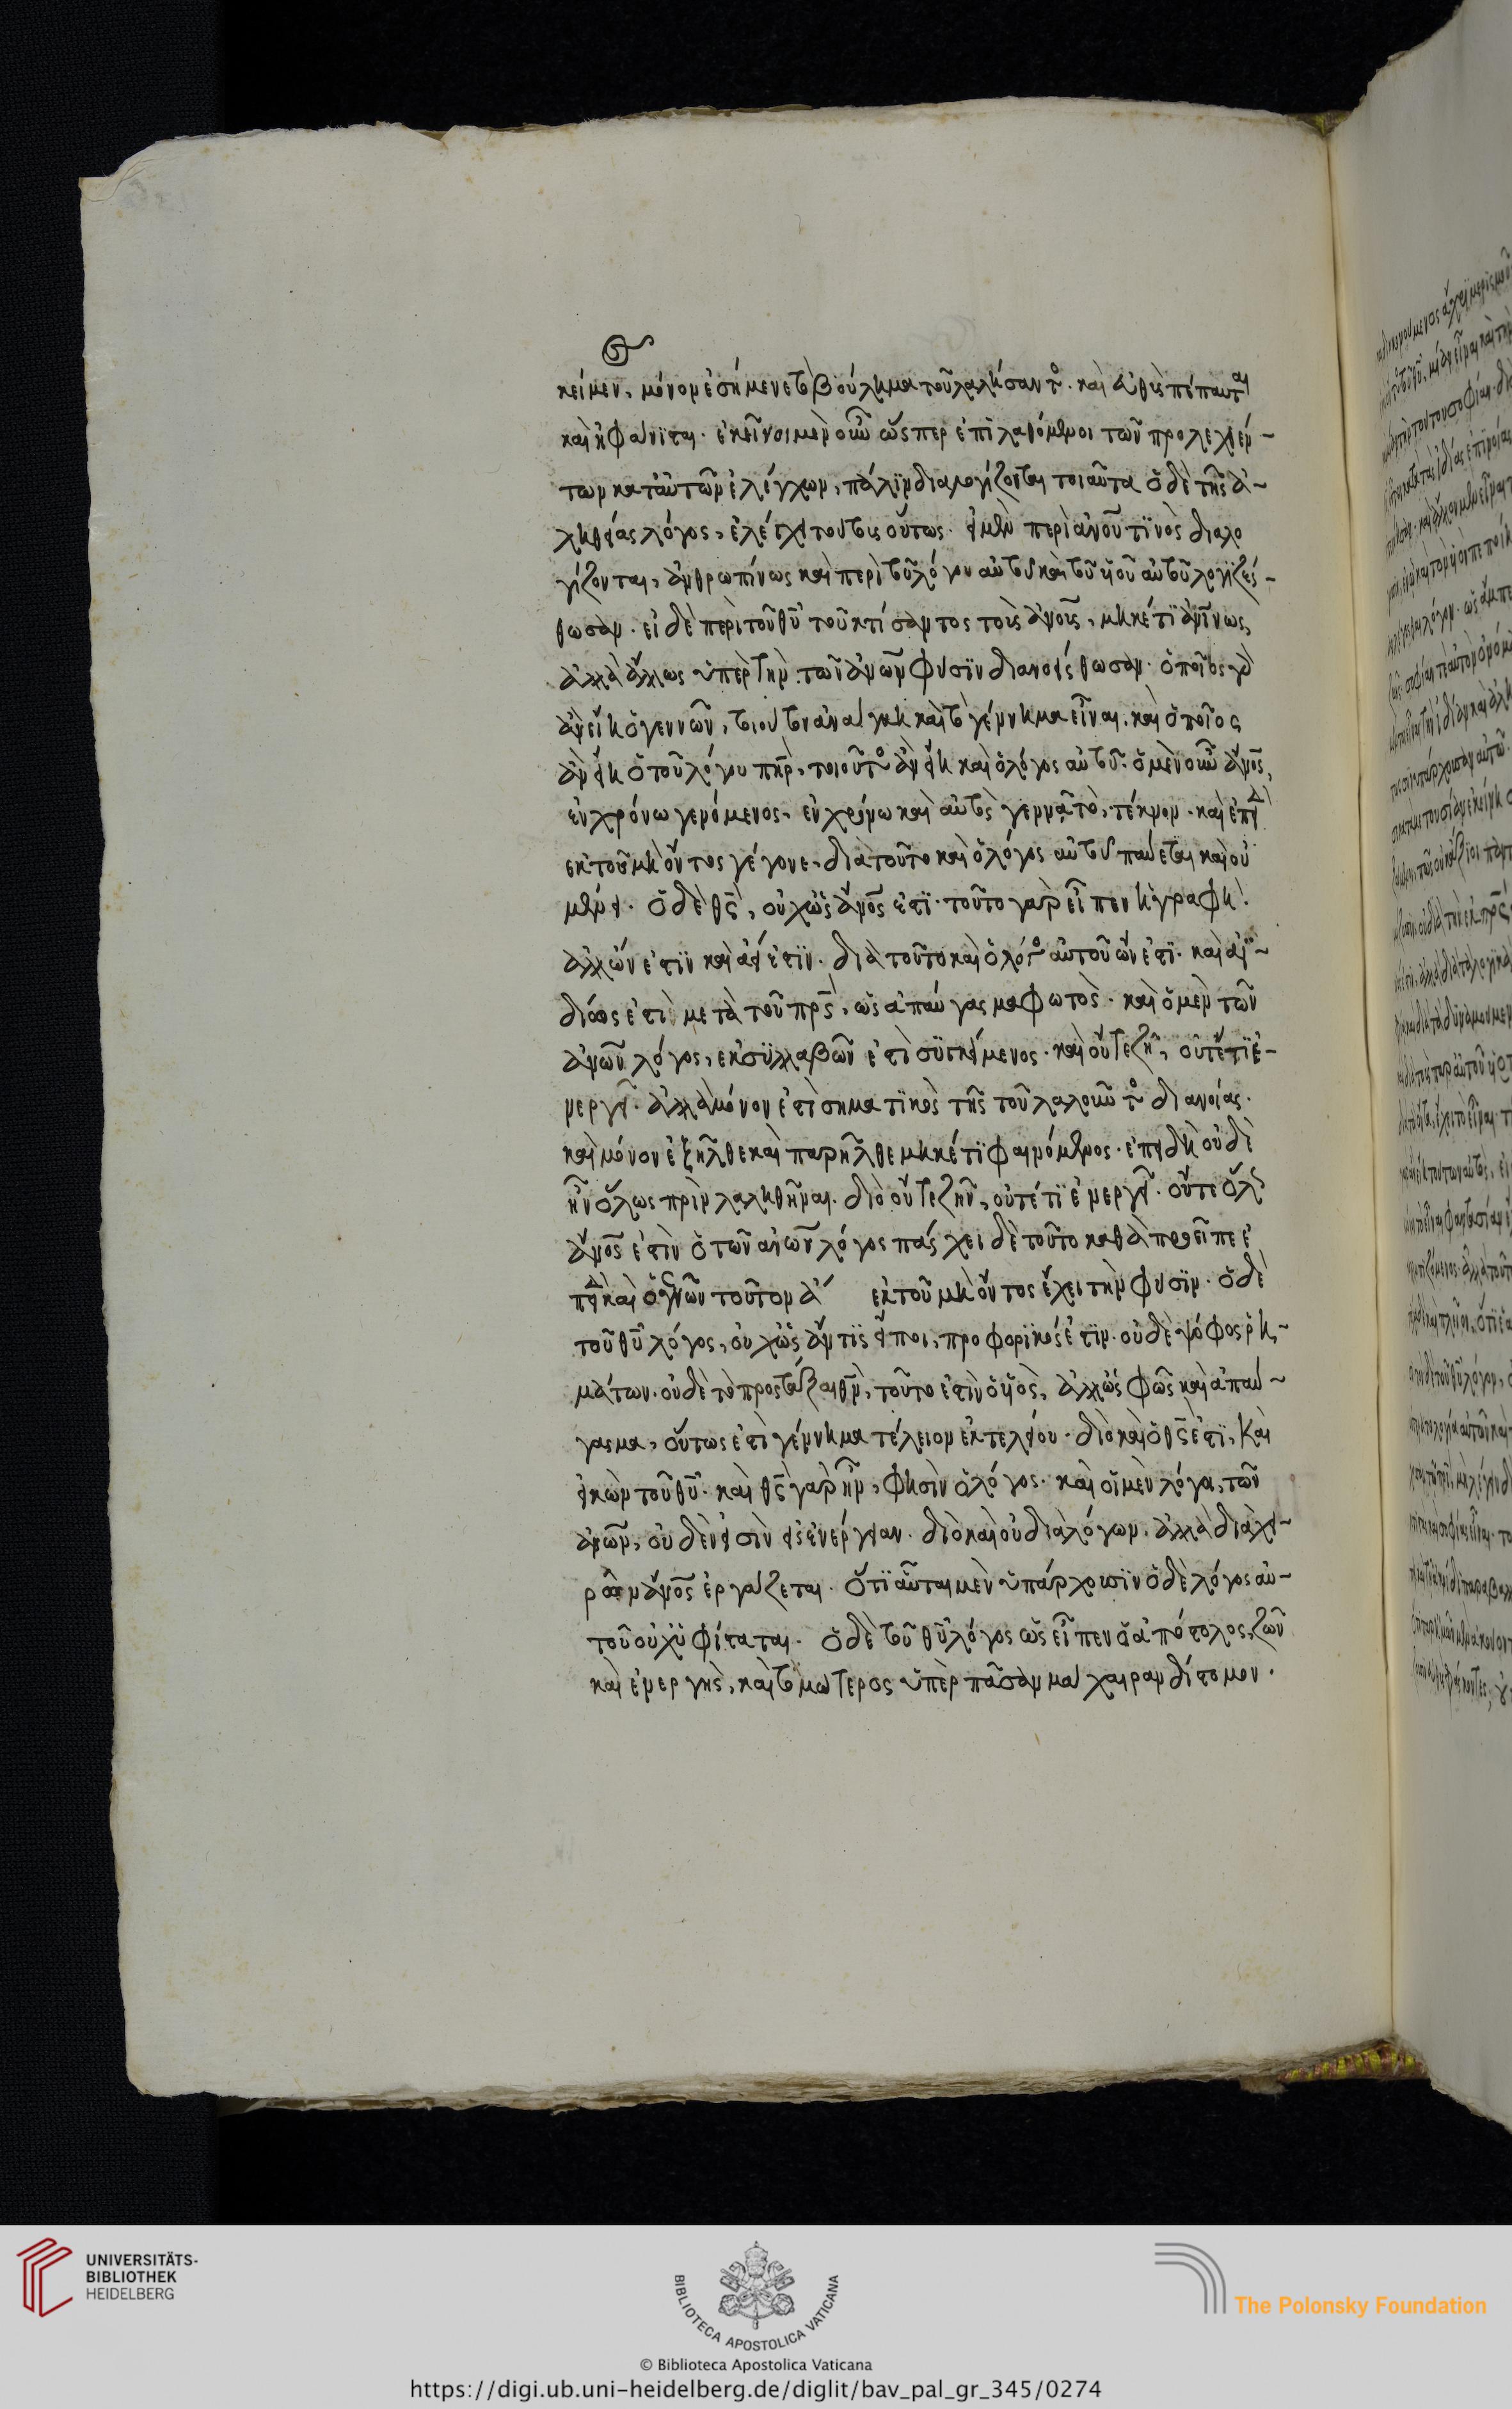 κείμεν, μόνον ἐσήμενε τὸ βούλημα τοῦ λαλήσαντο. καὶ εὐθὺς πέπαυται
καὶ ἠφάνισται. ἐκεῖνοι μὲν οὖν ὥσπερ ἐπιλαθόμενοι τῶν προλεχθέν-
των κατ' αὐτῶν ἐλέγχων, πάλιν διαλογίζονται τοιαῦτα ὁ δὲ τῆς ἀ-
ληθείας λόγος, ἐλέγχει τούτους οὕτως. εἰ μὲν περὶ ἀνου τινὸς διαλο
γίζονται, ἀνθρωπίνως καὶ περὶ τοῦ λόγου αὐτοῦ καὶ τοῦ υἱοῦ αὐτοῦ λογιζέσ-
θωσαν. εἰ δὲ περὶ τοῦ θυ τοῦ κτίσαντος τοὺς ἀνους, μηκέτι ἀνίνως,
ἀλλὰ ἄλλως ὑπὲρ τὴν τῶν ἀνων φύσιν διανοείσθωσαν. ὁποῖος γὰρ
ἂν εἴη ὁ γεννῶν, τοιοῦτον ἀνάγκη καὶ τὸ γέννημα εἶναι. καὶ ὁποῖος
ἂν εἴη ὁ τοῦ λόγου πηρ, τοιοῦτο ἂν εἴη καὶ ὁ λόγος αὐτοῦ. ὁ μὲν οὖν ἄνος,
ἐν χρόνω γενόμενος, ἐν χρόνω καὶ αὐτὸς γεννᾶ τὸ τέκνον. καὶ ἐπειδὴ
ἐκ τοῦ μὴ ὄντος γέγονε, διὰ τοῦτο καὶ ὁ λόγος αὐτοῦ παύεται καὶ οὐ
μένει. ὁ δὲ θς, οὐχ ὡς ἄνος ἐστι. τοῦτο γὰρ εἶπεν ἡ γραφή.
ἀλλ' ὤν ἐστιν καὶ ἀεί ἐστιν. διὰ τοῦτο καὶ ὁ λόγο αὐτοῦ ὤν ἐστι. καὶ ἀϊ-
δίως ἐστὶ μετὰ τοῦ πρς, ὡς ἀπαύγασμα φωτὸς. καὶ ὁ μὲν τῶν
ἀνων λόγος, ἐκ συλλαβῶν ἐστὶ συγκείμενος. καὶ οὔτε ζῆ, οὔτέ τι ἐ-
νεργεῖ. ἀλλὰ μόνον ἐστὶ σημαντικὸς τῆς τοῦ λαλοῦντο διανοίας.
καὶ μόνον ἐξῆλθε καὶ παρῆλθε μηκέτι φαινόμενος. ἐπειδὴ οὐδὲ
ἦν ὅλως πρὶν λαληθῆναι. διὸ οὔτε ζῆν, οὔτέ τι ἐνεργεῖ. οὔτε ὅλως
ἄνος ἐστὶν ὁ τῶν ανων λόγος πάσχει δὲ τοῦτο καθὰ προεῖπε ἐ
πειδὴ καὶ ὁ γεννῶν τοῦτον ἄ ἐκ τοῦ μὴ ὄντος ἔχει τὴν φύσιν. ὁ δὲ
τοῦ θυ λόγος, οὐχ ὡς ἄν τις εἴποι, προφορικός ἐστιν. οὐδὲ ψόφος ῥη-
μάτων. οὐδὲ τὸ προστάξαι θν, τοῦτο ἐστὶν ὁ υἱὸς, ἀλλ' ὡς φῶς καὶ ἀπαύ-
γασμα, οὕτως ἐστὶ γέννημα τέλειον ἐκ τελείου. διὸ καὶ ὁ θς ἐστι, καὶ
εἰκὼν τοῦ θυ. καὶ θς γὰρ ἦν, φησὶν ὁ λόγος. καὶ οἱ μὲν λόγοι, τῶν
ἀνων, οὐδὲν εἰσὶν εἰς ἐνέργειαν. διὸ καὶ οὐ διὰ λόγων. ἀλλὰ διὰ χει-
ρῶν ἄνος ἐργάζεται. ὅτι αὗται μὲν ὑπάρχουσιν ὁ δὲ λόγος αὐ-
τοῦ οὐχ ὑφίσταται. ὁ δὲ τοῦ θυ λόγος ὡς εἶπεν ὁ ἀπόστολος, ζῶν
καὶ ἐνεργὴς, καὶ τομώτερος ὑπὲρ πᾶσαν μάχαιραν δίστομον.
UNIVERSITÄTS-
BIBLIOTHEK
HEIDELBERG
BIBLIOTECA APOSTOLICA VATICANA
The Polonsky Foundation
© Biblioteca Apostolica Vaticana
https://digi.ub.uni-heidelberg.de/diglit/bav_pal_gr_345/0274